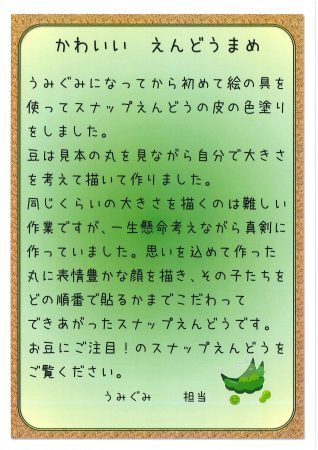 かわいい　えんどうまめ
うみぐみになってから初めて絵の具を
使ってスナップえんどうの皮の色塗り
をしました。
豆は見本の丸を見ながら自分で大きさ
を考えて描いて作りました。
同じくらいの大きさを描くのは難しい
作業ですが、一生懸命考えながら真剣に
作っていました。思いを込めて作った
丸に表情豊かな顔を描き、その子たちを
どの順番で貼るかまでこだわって
できあがったスナップえんどうです。
お豆にご注目！のスナップえんどうを
ご覧ください。
うみぐみ　　担当